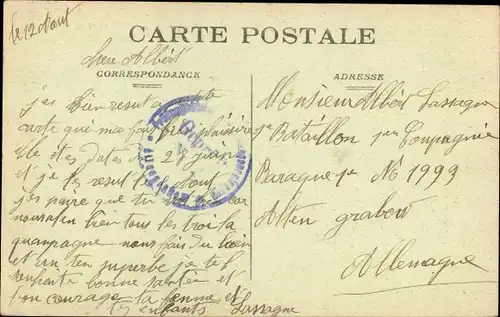 le 12 Aout
CARTE POSTALE
Cher Albert
CORRESPONDANCE
j'es bien resut
carte qui ma fait plaisire
Elle etes dates du 28 juin
et je les resut le Aout
j'es que tu
bien tous les troi la
quampagne nous fais du bien
et un ten superbe je te
souhaite bonne santée et
bon courage ta femme et
tes enfants Lassagne
ADRESSE
Monsieur Albert Lassagne
1e Bataillon 1er Compagnie
Baraque 1e No 1993
Alten graben
Allemagne
Geprüft